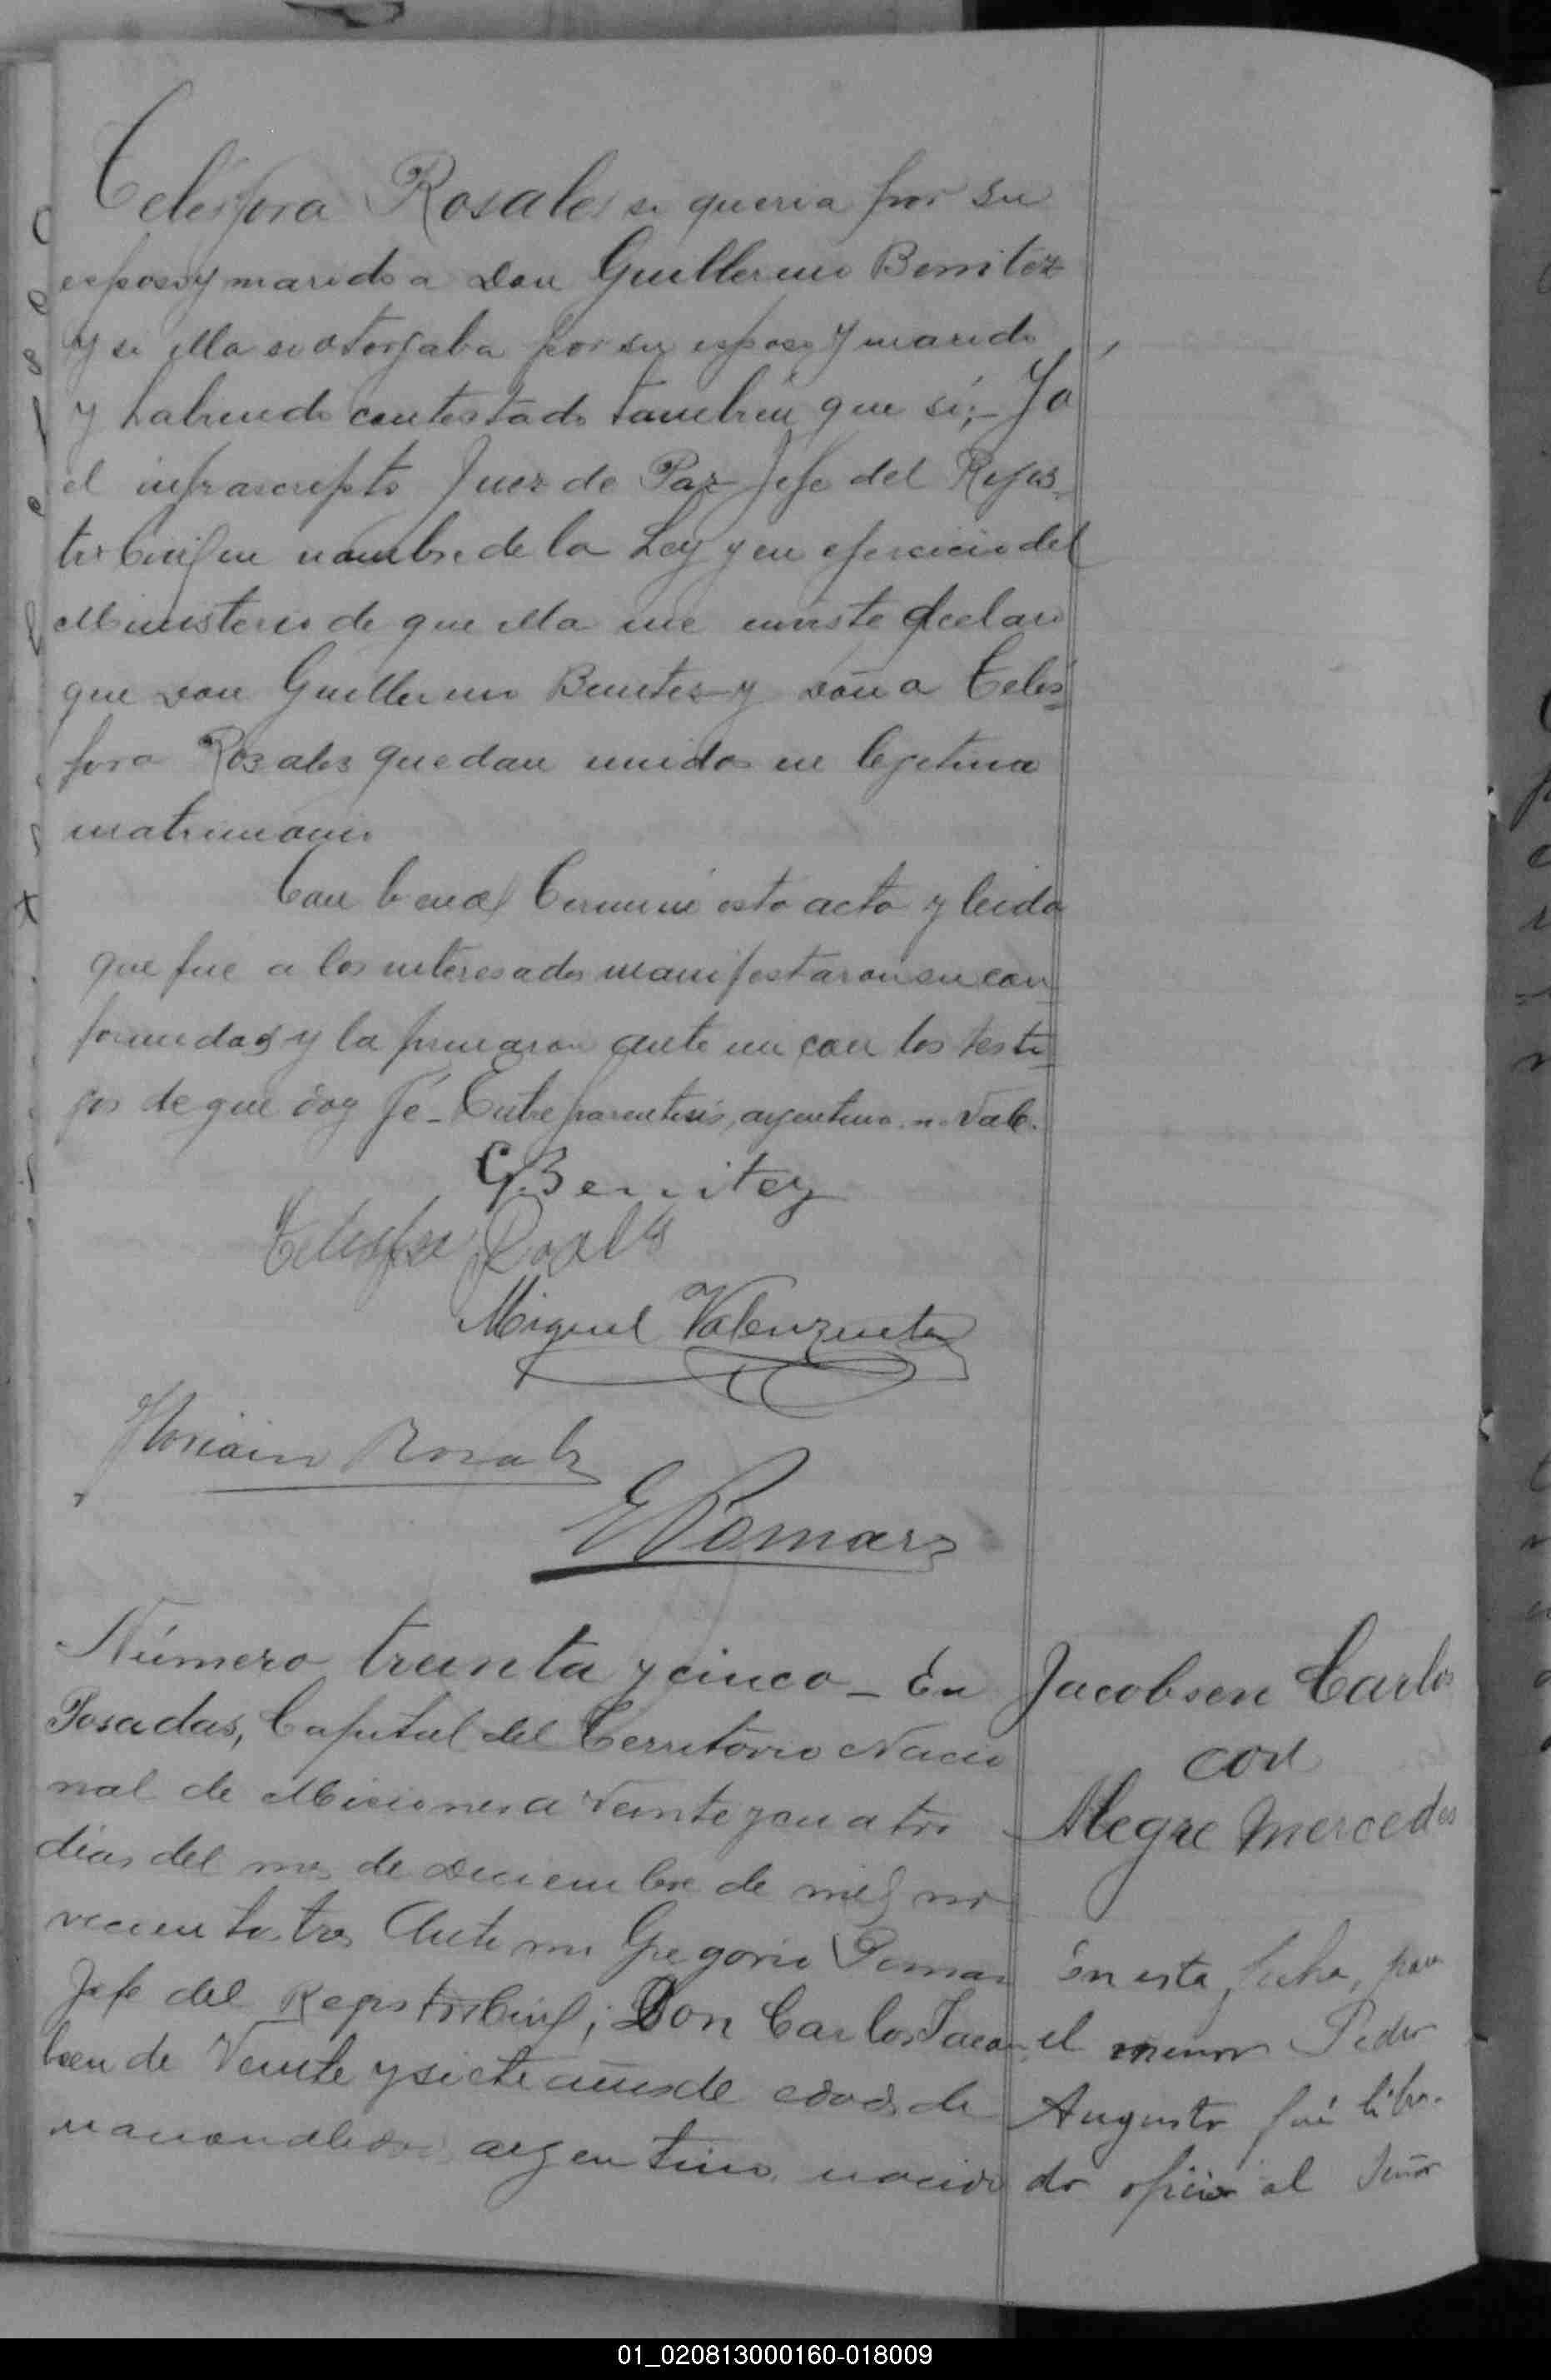 Telésfora Rosales si queria por su
esposo y marido a Don Guillermo Benitez
y si ella se otorgaba por su esposa y marido
y habiendo contestado tambien que sí;- Yo
el infrascripto Juez de Paz Jefe del Rejis-
tro Civil en nombre de la Ley y en ejercicio del
Ministerio de que ella me inviste declaro
que Don Guillermo Benitez y Doña Teles-
fora Rosales quedan unidos en lejitimo
matrimonio
Con lo cual terminé esta acta y leida
que fue a los interesados manifestaron su con-
formidad y la firmaron ante mi con los testi-
gos de que doy fé - Entre parentesis, argentino.. Vale.
G. Benitez
Telesfora Rosales
Miguel Valenzuela
Rosales
G Pomar
Número treinta y cinco - En
Posadas, Capital del Territorio Nacio
nal de Misiones a veinte y cuatro
dias del mes de Diciembre de mil no-
vecientos tres Ante mi Gregorio Pomar
Jefe del Rejistro Civil; Don Carlos Jacob-
sen de Veinte y siete años de edad, de
nacionalidad argentino, nacido
Jacobsen Carlos
con
Alegre Mercedes
En esta fecha, para
el menor Pedro
Augusto fué libra-
do oficio al Señor
01_020813000160-018009